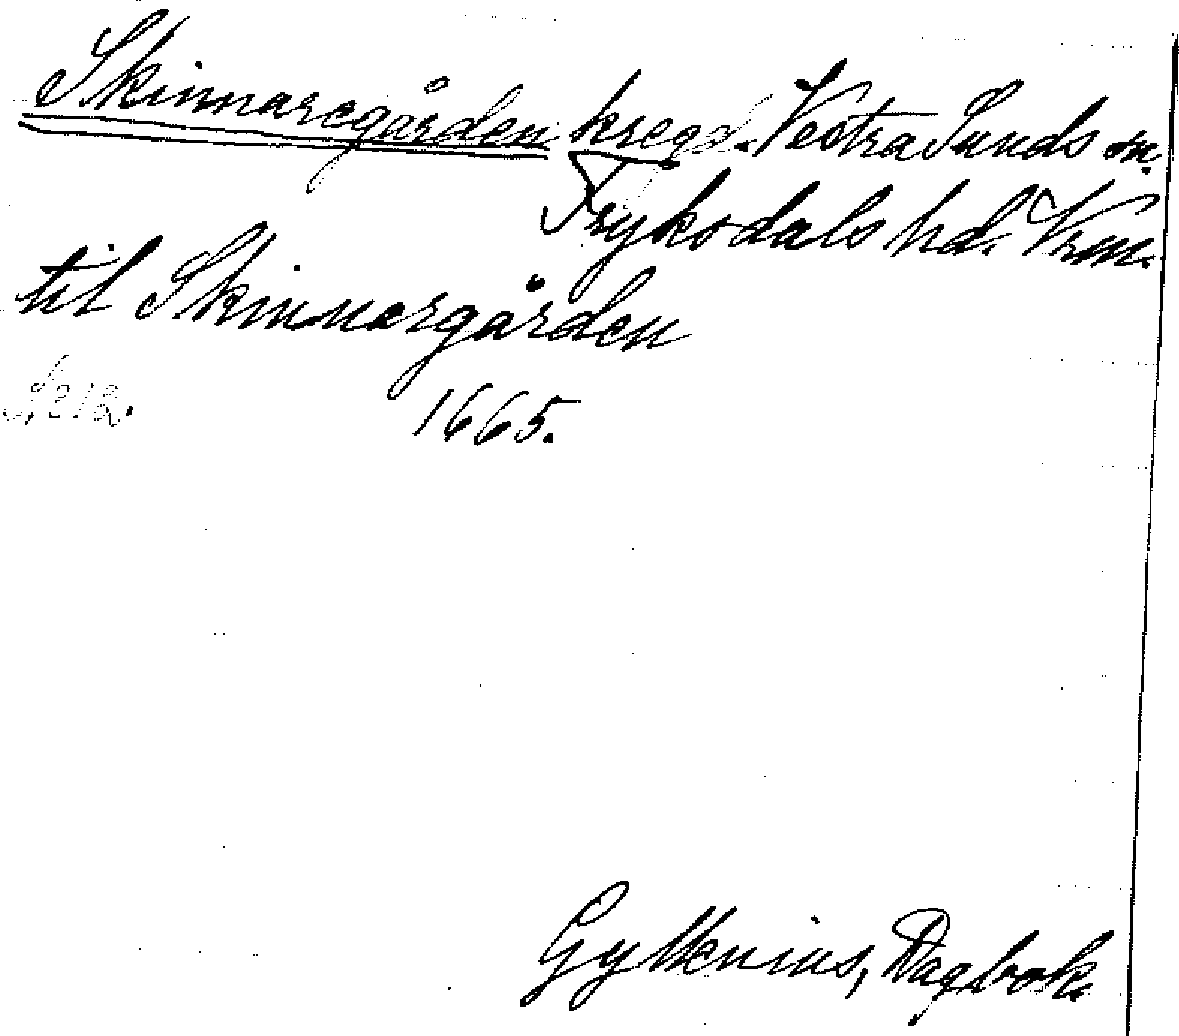 Skinnaregården kregd. Vestra Sunds sn.
Fryksdals hd. Vrm.
til Skinnargården
s. 212.
1665.
Gyllenius, Dagbok.